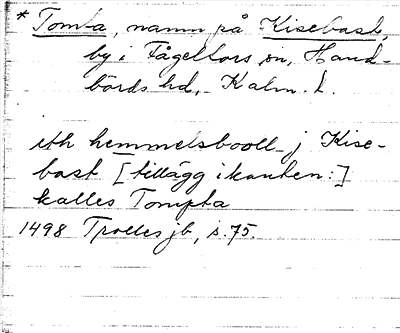 * Tomta, namn på Kisebast,
by i Fågelfors sn, Hand-
börds hd, Kalm. l.
ith hemmelsbooll j Kise-
bast [tillägg i kanten:]
kalles Tompta
1498 Trolles jb, s. 75.